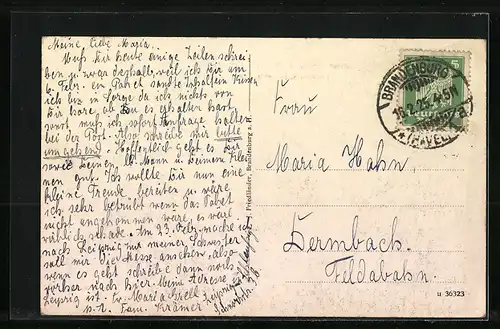 Meine liebe Maria.
Muß Dir heute einige Zeilen schrei-
ben u. zwar deshalb weil ich Dir am
6. Febr. ein Paket sandte
bin in Sorge da ich nichts von
Dir höre, ob Du es erhalten hast
sonst muß ich sofort Anfrage halten
bei der Post. Also schreibe mir bitte
umgehend. Hoffentlich geht es Dir
sowie Deinem lb. Mann u. Deinem Klei-
nen gut. Ich wollte Dir nun eine
kleine Freude bereiten u. wäre
ich sehr betrübt wenn das Paket
nicht angekommen wäre, es wäre
wirklich schade. Am 23. Febr. mache ich
nach Leipzig zu meiner Schwester
will mir die Messe ansehen, also
wenn es geht schreibe dann noch
vorher nach hier. Meine Adresse
Leipzig ist. Fr. Maria
p. A. Fam. Krämer
Leipzig
Friedländer, Brandenburg a.
Frau
Maria Hahn.
Dermbach.
Feldabahn.
BRANDENBURG
(HAVEL)
16.2.25
5
u 36323